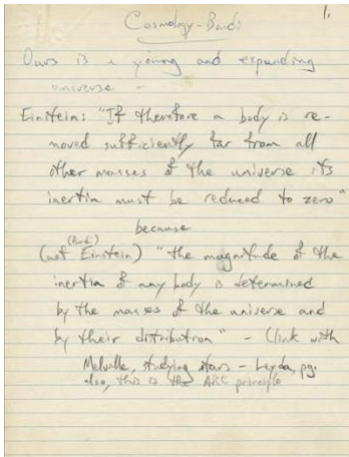 1.
Cosmology - Bondi
Ours is a young and expanding
universe -
Einstein: "If therefore a body is re-
moved sufficiently far from all
other masses of the universe its
inertia must be reduced to zero"
because
(Bondi)
(not Einstein) "the magnitude of the
inertia of any body is determined
by the masses of the universe and
by their distribution" - (link with
Melville, studying stars - Leyda, pg.
also, this is the ARC principle